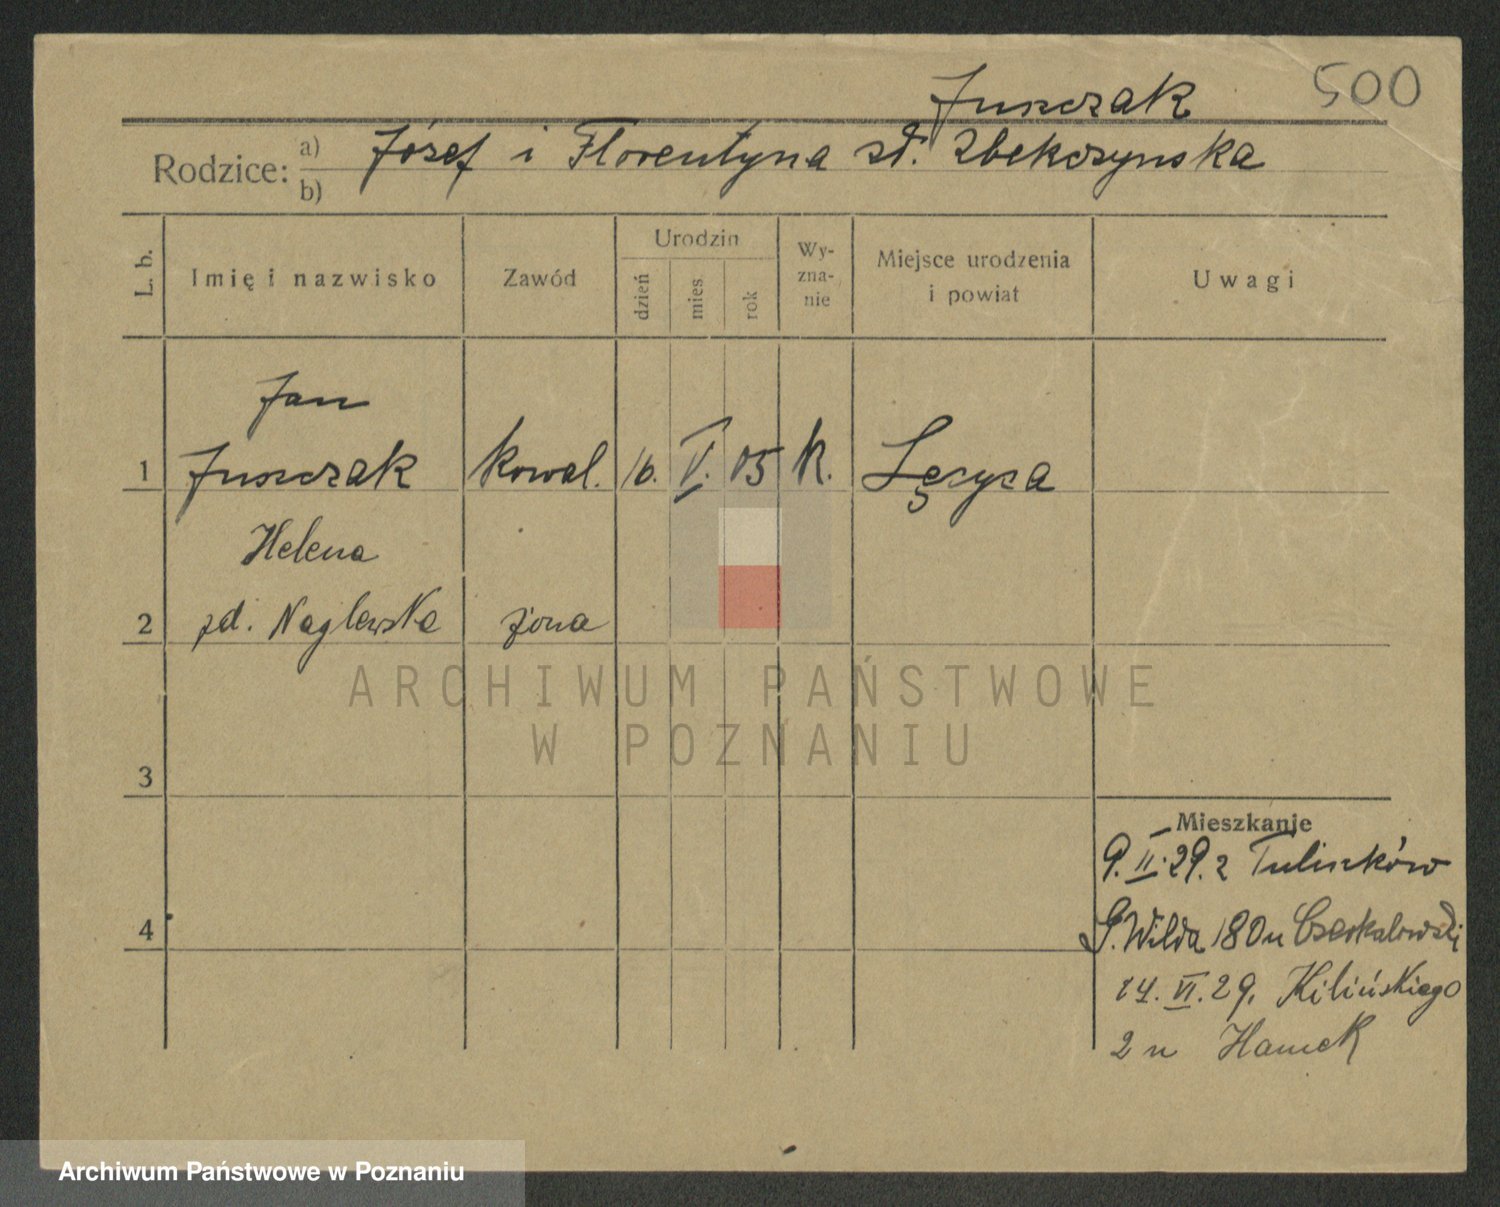 Juszczak
500
Rodzice: a) Józef i Florentyna
b)
L. b.
Imię i nazwisko
Zawód
Urodzin
dzień
mies
rok
Wy-
zna-
nie
Miejsce urodzenia
i powiat
Uwagi
Jan
1 Juszczak kowal. 10. V. 05 K.
Helena
2 zd. Naglewska żona
3
4
Mieszkanie
9. II. 29. z Tuliszków
G. Wilda 180 u
14. VI. 29. Kilińskiego
2 u
ARCHIWUM PAŃSTWOWE
W POZNANIU
Archiwum Państwowe w Poznaniu